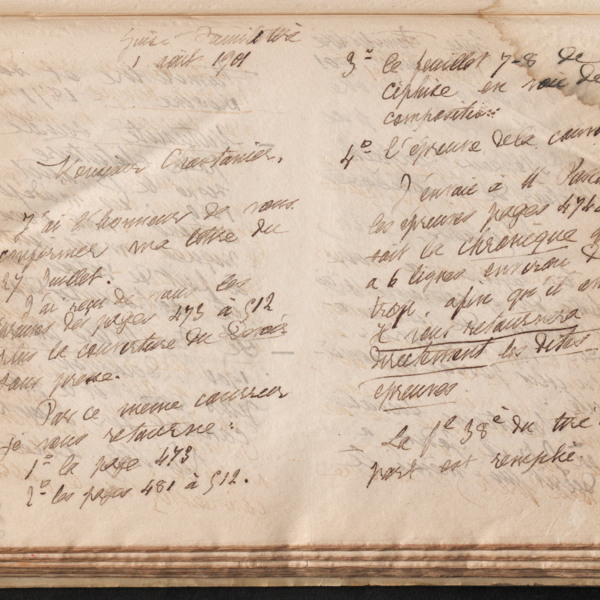 1 août 1901
Monsieur Chastanier,
J'ai l'honneur de vous
confirmer ma lettre du
27 Juillet.
J'ai reçu de vous les
épreuves des pages 473 à 512
plus la couverture du
sous presse.
Par ce même courrier
je vous retourne :
1º la page 473
2º les pages 481 à 512.
3º le feuillet 7-8 de
en voie de
composition
4º l'épreuve de la
J'envoie à M
les épreuves pages 474
soit la chronique
a 6 lignes environ de
trop, afin qu'il
Il vous retournera
directement les dites
épreuves.
La fe 38e du tiré
part est remplie.